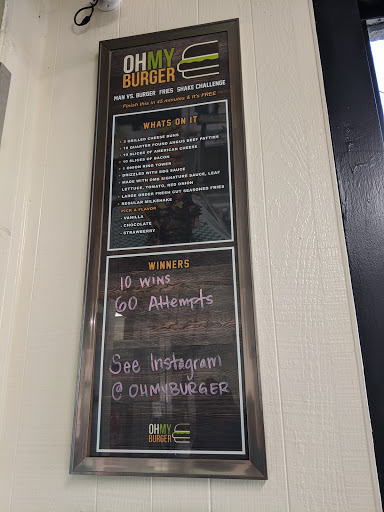 OHMY
BURGER
MAN VS. BURGER FRIES SHAKE CHALLENGE
Finish this in 45 minutes & it's FREE
WHATS ON IT
• 2 GRILLED CHEESE BUNS
• 10 QUARTER POUND ANGUS BEEF PATTIES
• 10 SLICES OF AMERICAN CHEESE
• 10 SLICES OF BACON
• 1 ONION RING TOWER
• DRIZZLED WITH BBQ SAUCE
• MADE WITH OMB SIGNATURE SAUCE, LEAF
LETTUCE, TOMATO, RED ONION
• LARGE ORDER FRESH CUT SEASONED FRIES
• REGULAR MILKSHAKE
PICK A FLAVOR
• VANILLA
• CHOCOLATE
• STRAWBERRY
WINNERS
10 WINS
60 Attempts
See Instagram
@ OHMYBURGER
OHMY
BURGER